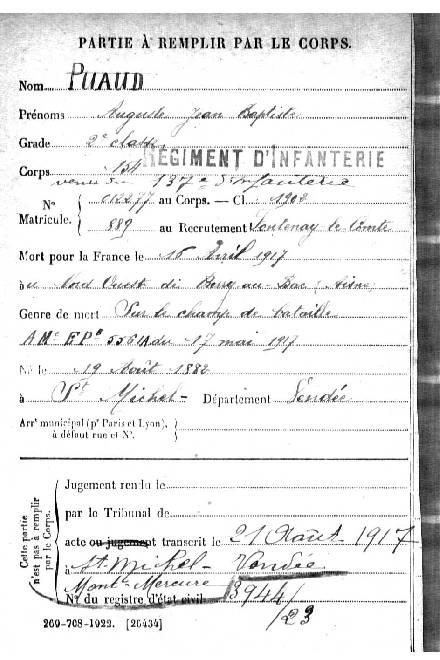 PARTIE À REMPLIR PAR LE CORPS.
Nom PUAUD
Prénoms Auguste Jean Baptiste
Grade 2e classe
Corps 154 RÉGIMENT D'INFANTERIE
venu du 137e d'infanterie
No Matricule. 012277 au Corps. — Cl. 1902
889 au Recrutement Fontenay le Comte
Mort pour la France le 16 Avril 1917
au Nord Ouest de Berry au Bac (Aisne)
Genre de mort Sur le champ de bataille
du 17 mai 1917
Né le 19 Août 1882
à St Michel - Département Vendée
Arrt municipal (pr Paris et Lyon), à défaut rue et No.
Cette partie n'est pas à remplir par le Corps.
Jugement rendu le
par le Tribunal de
acte ou jugement transcrit le 21 Août 1917
à St. Michel - Vendée
Mont Mercure
No du registre d'état civil 3944/23
269-708-1922. [26434]